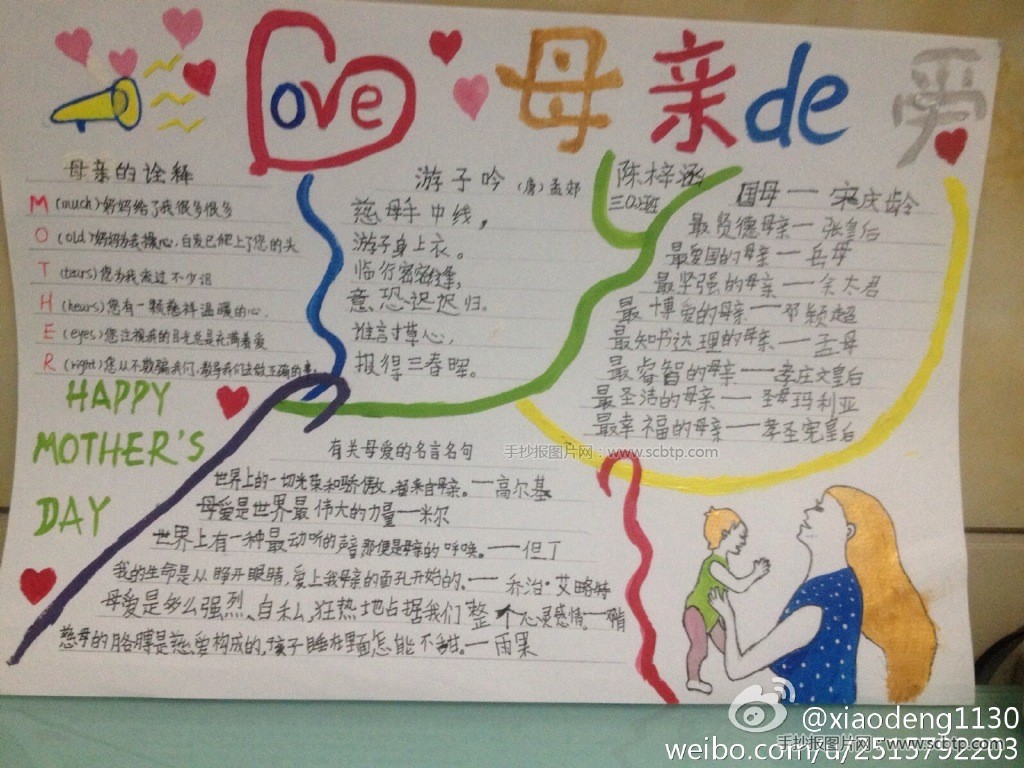 Love 母亲de 爱
母亲的诠释
M (much) 妈妈给了我很多很多
O (old) 妈妈为我操心,白发已爬上了您的头
T (tears) 您为我流过不少泪
H (hears) 您有一颗慈祥温暖的心.
E (eyes) 您注视我的目光总是充满着爱
R (right) 您从不欺骗我们,教导我们去做正确的事.
HAPPY
MOTHER'S
DAY
游子吟 (唐) 孟郊
慈母手中线,
游子身上衣。
临行密密缝,
意恐迟迟归。
谁言寸草心,
报得三春晖。
陈梓涵
三(2)班
国母——宋庆龄
最贤德母亲——张皇后
最爱国的母亲——岳母
最坚强的母亲——佘太君
最博爱的母亲——邓颖超
最知书达理的母亲——孟母
最睿智的母亲——孝庄文皇后
最圣洁的母亲——圣母玛利亚
最幸福的母亲——孝圣宪皇后
有关母爱的名言名句
世界上的一切光荣和骄傲,都来自母亲。——高尔基
母爱是世界最伟大的力量——米尔
世界上有一种最动听的声音那便是母亲的呼唤。——但丁
我的生命是从睁开眼睛,爱上我母亲的面孔开始的。——乔治·艾略特
母爱是多么强烈、自私,狂热地占据我们整个心灵感情。
慈母的胳膊是慈爱构成的,孩子睡在里面怎能不甜。——雨果
手抄报图片网:www.scbtp.com
@xiaodeng1130
weibo.com/u/2515792203
手抄报图片网:www.scbtp.com